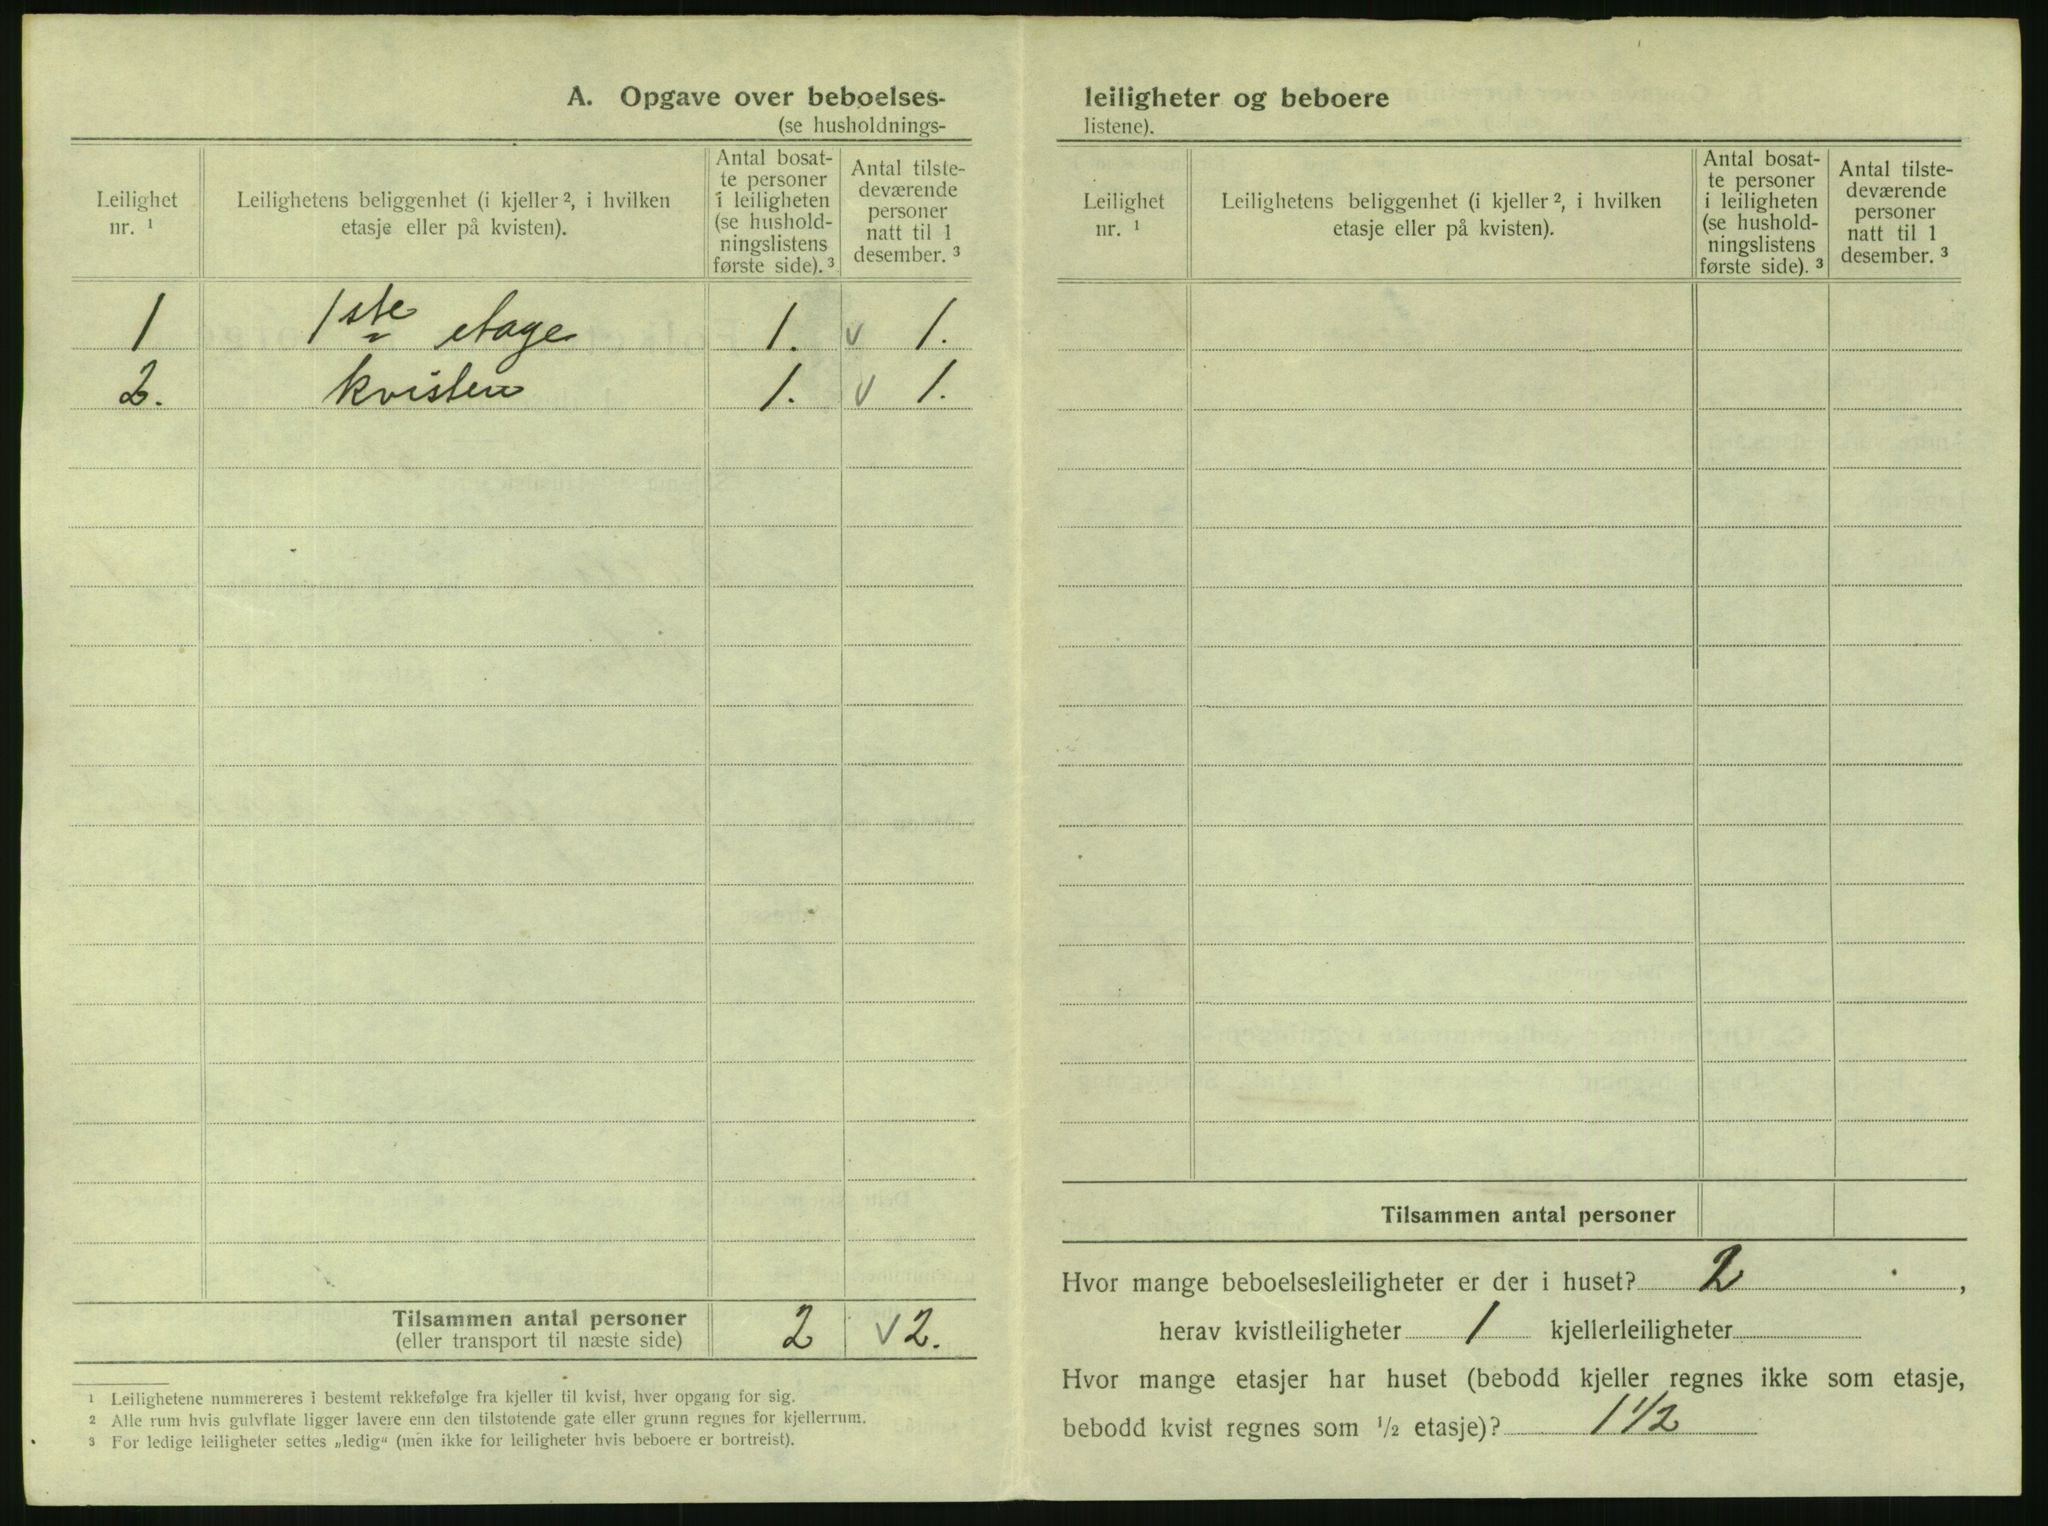 A. Opgave over beboelses-
(se husholdnings-
Leilighet
nr. ¹
Leilighetens beliggenhet (i kjeller ², i hvilken
etasje eller på kvisten).
Antal bosat-
te personer
i leiligheten
(se hushold-
ningslistens
første side). ³
Antal tilste-
deværende
personer
natt til 1
desember. ³
1 1ste etage 1. v 1.
2. kvisten 1. v 1.
Tilsammen antal personer
(eller transport til næste side)
2 v 2.
¹ Leilighetene nummereres i bestemt rekkefølge fra kjeller til kvist, hver opgang for sig.
² Alle rum hvis gulvflate ligger lavere enn den tilstøtende gate eller grunn regnes for kjellerrum.
³ For ledige leiligheter settes „ledig“ (men ikke for leiligheter hvis beboere er bortreist).
leiligheter og beboere
listene).
Leilighet
nr. ¹
Leilighetens beliggenhet (i kjeller ², i hvilken
etasje eller på kvisten).
Antal bosat-
te personer
i leiligheten
(se hushold-
ningslistens
første side). ³
Antal tilste-
deværende
personer
natt til 1
desember. ³
Tilsammen antal personer
Hvor mange beboelsesleiligheter er der i huset? 2 ,
herav kvistleiligheter 1 kjellerleiligheter
Hvor mange etasjer har huset (bebodd kjeller regnes ikke som etasje,
bebodd kvist regnes som ½ etasje)? 1 1/2